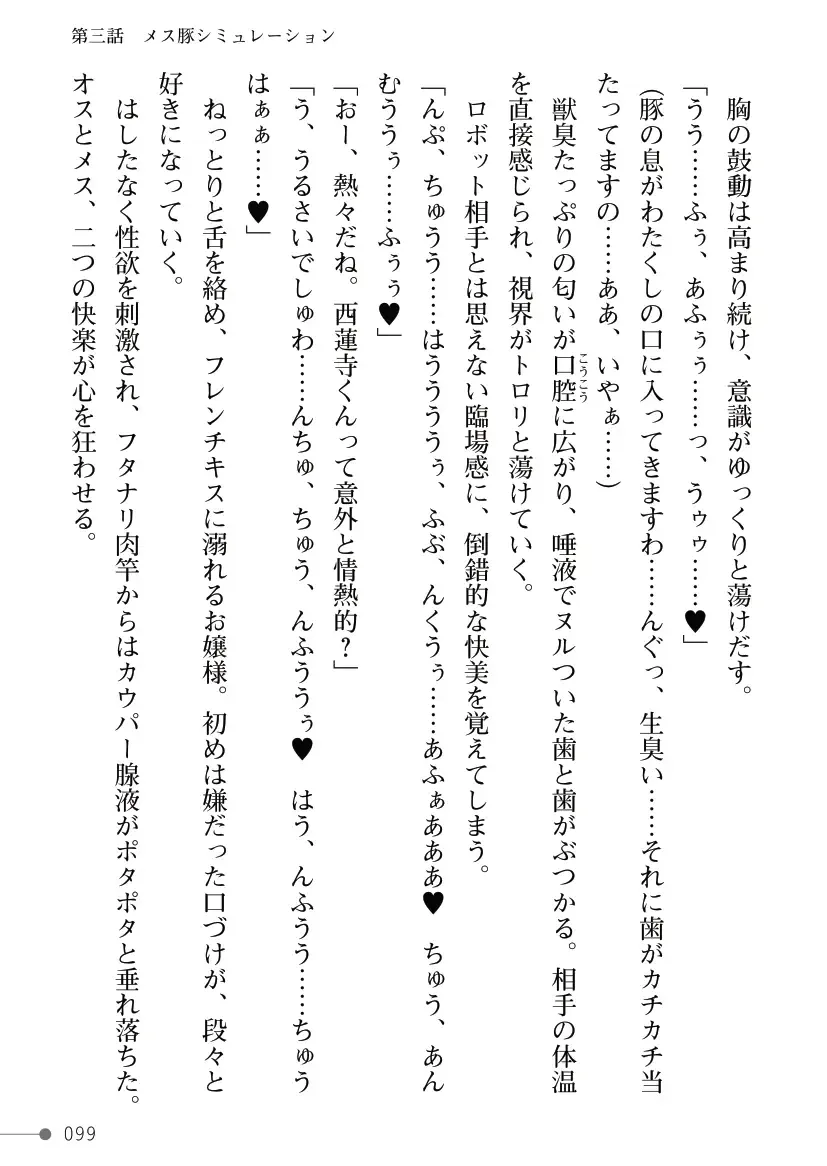 第三話　メス豚シミュレーション
　胸の鼓動は高まり続け、意識がゆっくりと蕩けだす。
「うう……ふぅ、あふぅぅ……っ、うゥゥ……♥」
（豚の息がわたくしの口に入ってきますわ……んぐっ、生臭い……それに歯がカチカチ当
たってますの……ああ、いやぁ……）
　獣臭たっぷりの匂いが口腔に広がり、唾液でヌルついた歯と歯がぶつかる。相手の体温
こうこう
を直接感じられ、視界がトロリと蕩けていく。
　ロボット相手とは思えない臨場感に、倒錯的な快美を覚えてしまう。
「んぷ、ちゅうう……はうううぅ、ふぶ、んくうぅ……あふぁあああ♥　ちゅう、あん
むううぅ……ふぅぅ♥」
「おー、熱々だね。西蓮寺くんって意外と情熱的？」
「う、うるさいでしゅわ……んちゅ、ちゅう、んふううぅ♥　はう、んふうう……ちゅう
はぁぁ……♥」
　ねっとりと舌を絡め、フレンチキスに溺れるお嬢様。初めは嫌だった口づけが、段々と
好きになっていく。
　はしたなく性欲を刺激され、フタナリ肉竿からはカウパー腺液がポタポタと垂れ落ちた。
オスとメス、二つの快楽が心を狂わせる。
099